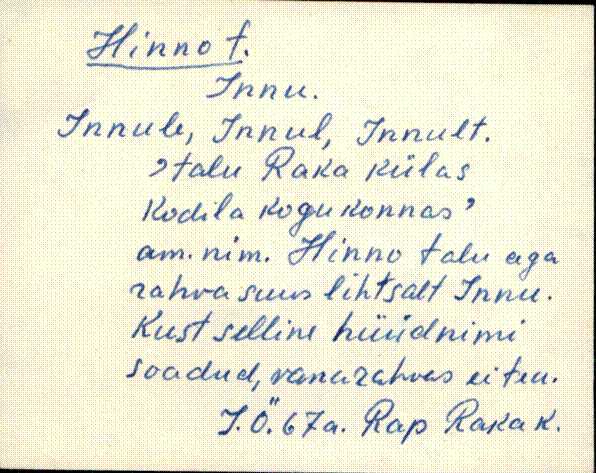 Hinno t.
Innu.
Innule, Innul, Innult.
'talu Raka külas
Kodila kogukonnas'
am. nim. Hinno talu aga
rahva suus lihtsalt Innu.
Kust selline hüüdnimi
soadud, vanarahvas ei tea.
I. Ö. 67a. Rap Raka k.